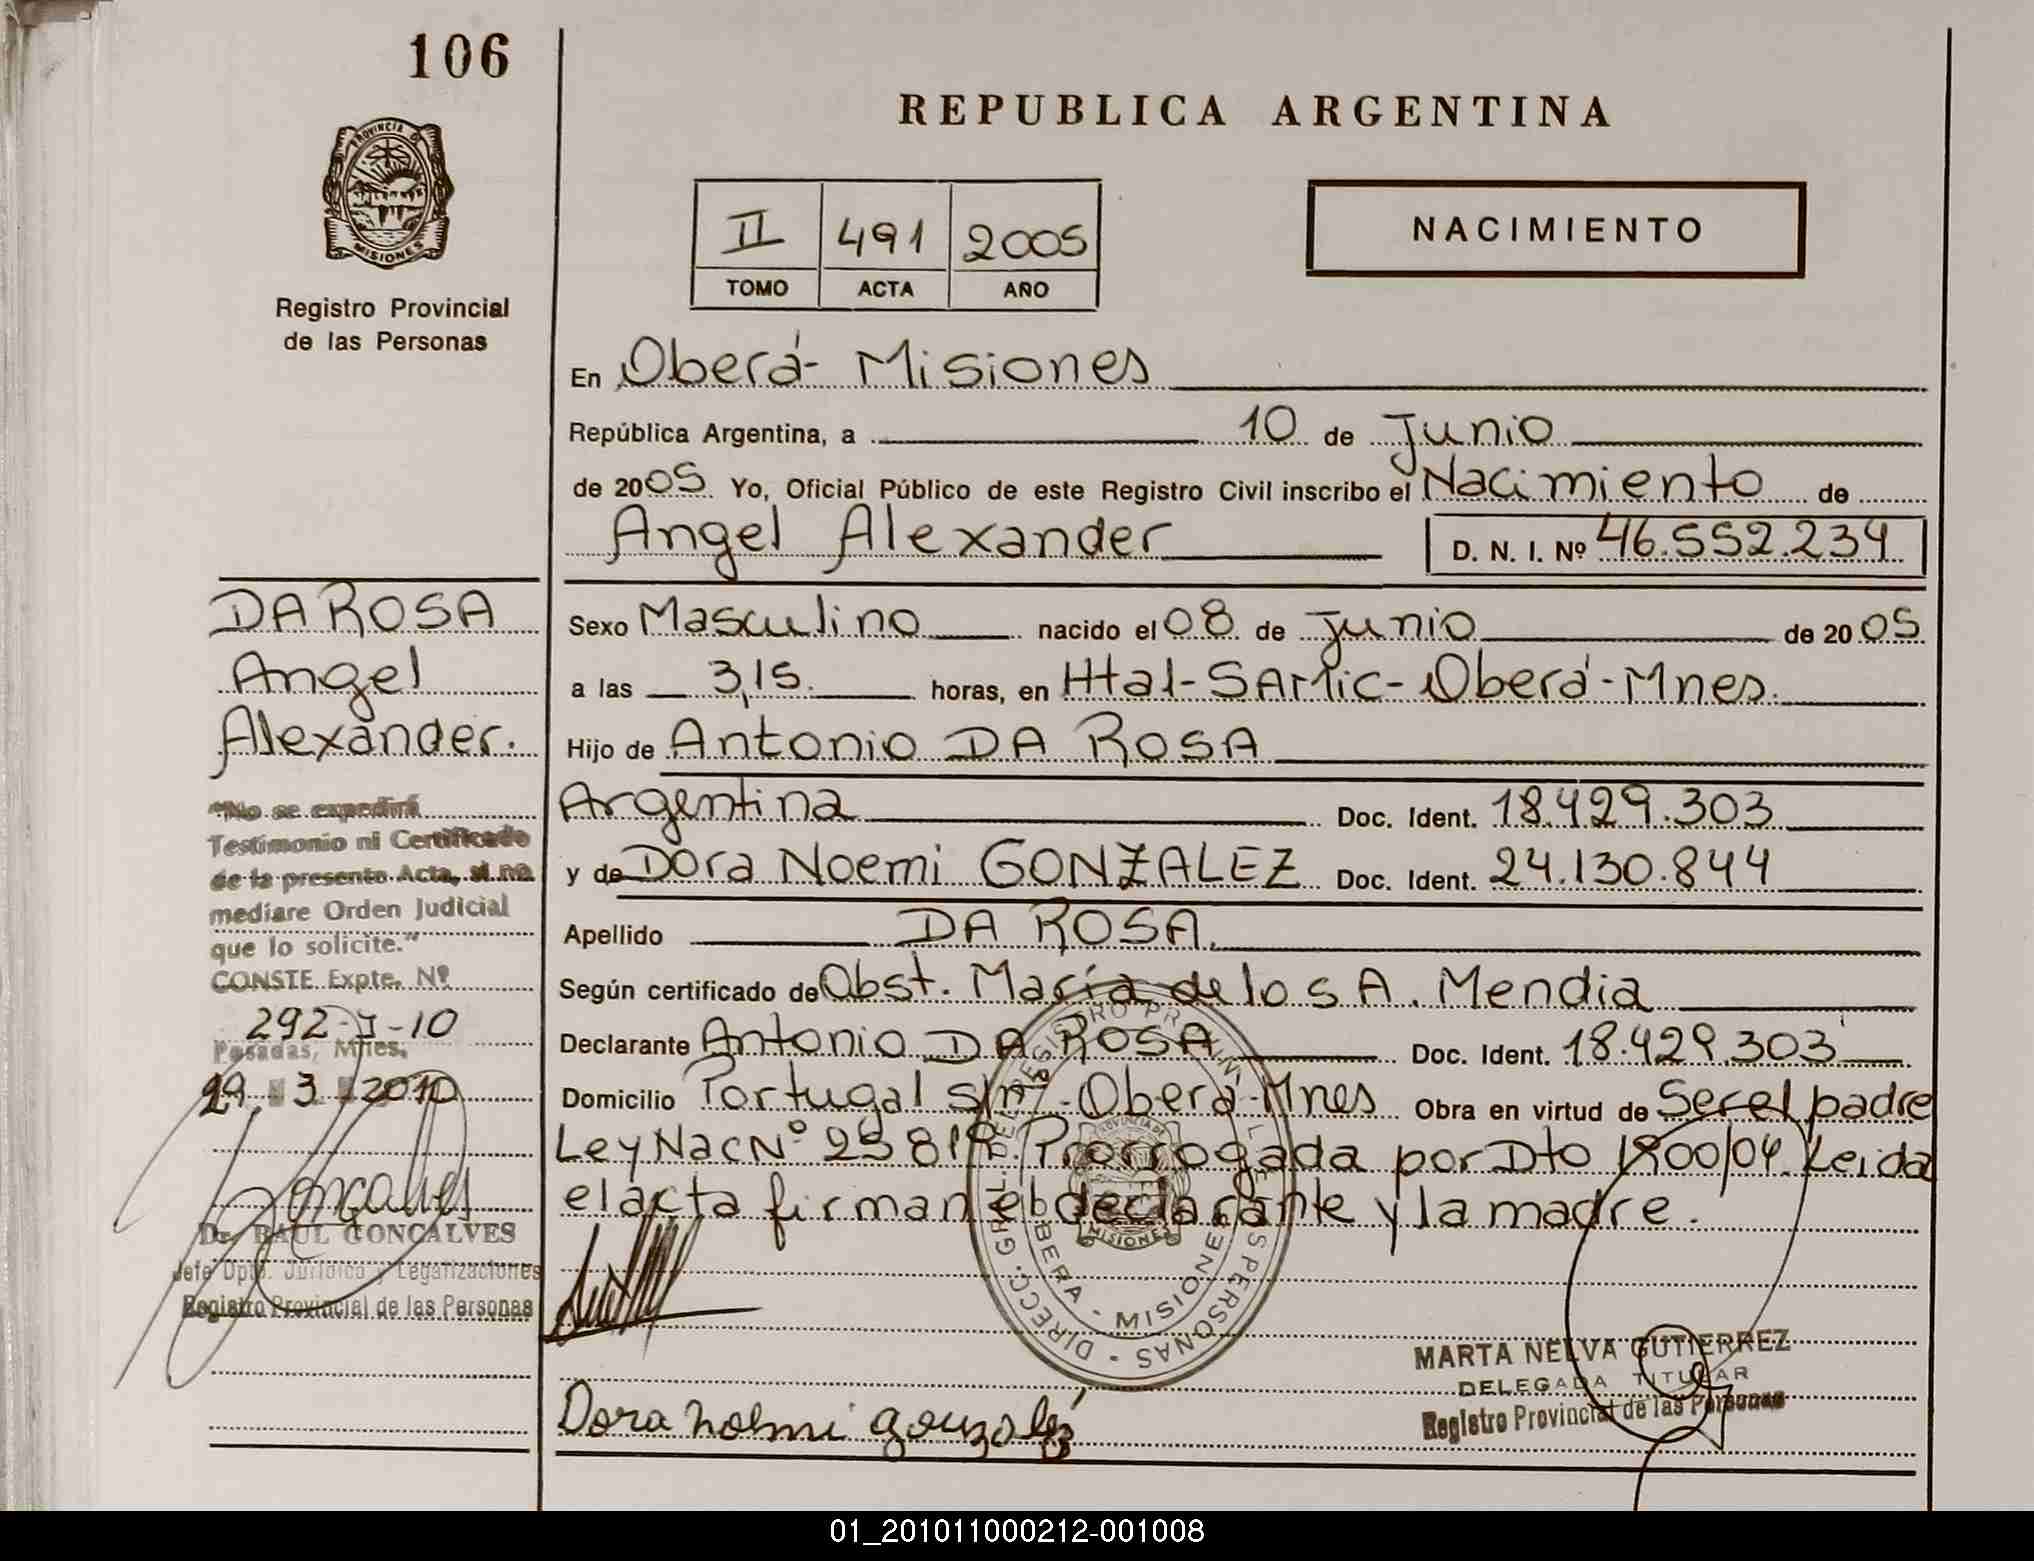 106
REPUBLICA ARGENTINA
PROVINCIA DE
MISIONES
Registro Provincial
de las Personas
II 491 2005
TOMO ACTA AÑO
NACIMIENTO
En Oberá- Misiones
República Argentina, a 10 de Junio
de 2005 Yo, Oficial Público de este Registro Civil inscribo el Nacimiento de
Angel Alexander D. N. I. Nº 46.552.234
Sexo Masculino nacido el 08 de Junio de 2005
a las 3,15. horas, en Htal-SAMic-Oberá-Mnes.
Hijo de Antonio DA ROSA
Argentina Doc. Ident. 18.429.303
y de Dora Noemi GONZALEZ Doc. Ident. 24.130.844
Apellido DA ROSA.
Según certificado de Obst. María de los A. Mendia
Declarante Antonio DA ROSA Doc. Ident. 18.429.303
Domicilio Portugal s/nº-Oberá-Mnes Obra en virtud de Ser el padre
Ley Nac Nº 25819. Prorrogada por Dto 1900/04. Leida
el acta firman el declarante y la madre.
DA ROSA
Angel
Alexander.
"No se expedirá
Testimonio ni Certificado
de la presente Acta, si no
mediare Orden Judicial
que lo solicite."
CONSTE Expte. Nº
292-J-10
Posadas, Mnes,
29 3 2010
Goncalves
Dr. RAUL GONCALVES
Jefe Dpto. Jurídico y Legalizaciones
Registro Provincial de las Personas
DIRECC. GRL. DEL REGISTRO PROVINCIAL DE LAS PERSONAS
OBERA - MISIONES
PROVINCIA DE
MISIONES
Dora Noemi gonzalez
MARTA NELVA GUTIERREZ
DELEGADA TITULAR
Registro Provincial de las Personas
01_201011000212-001008